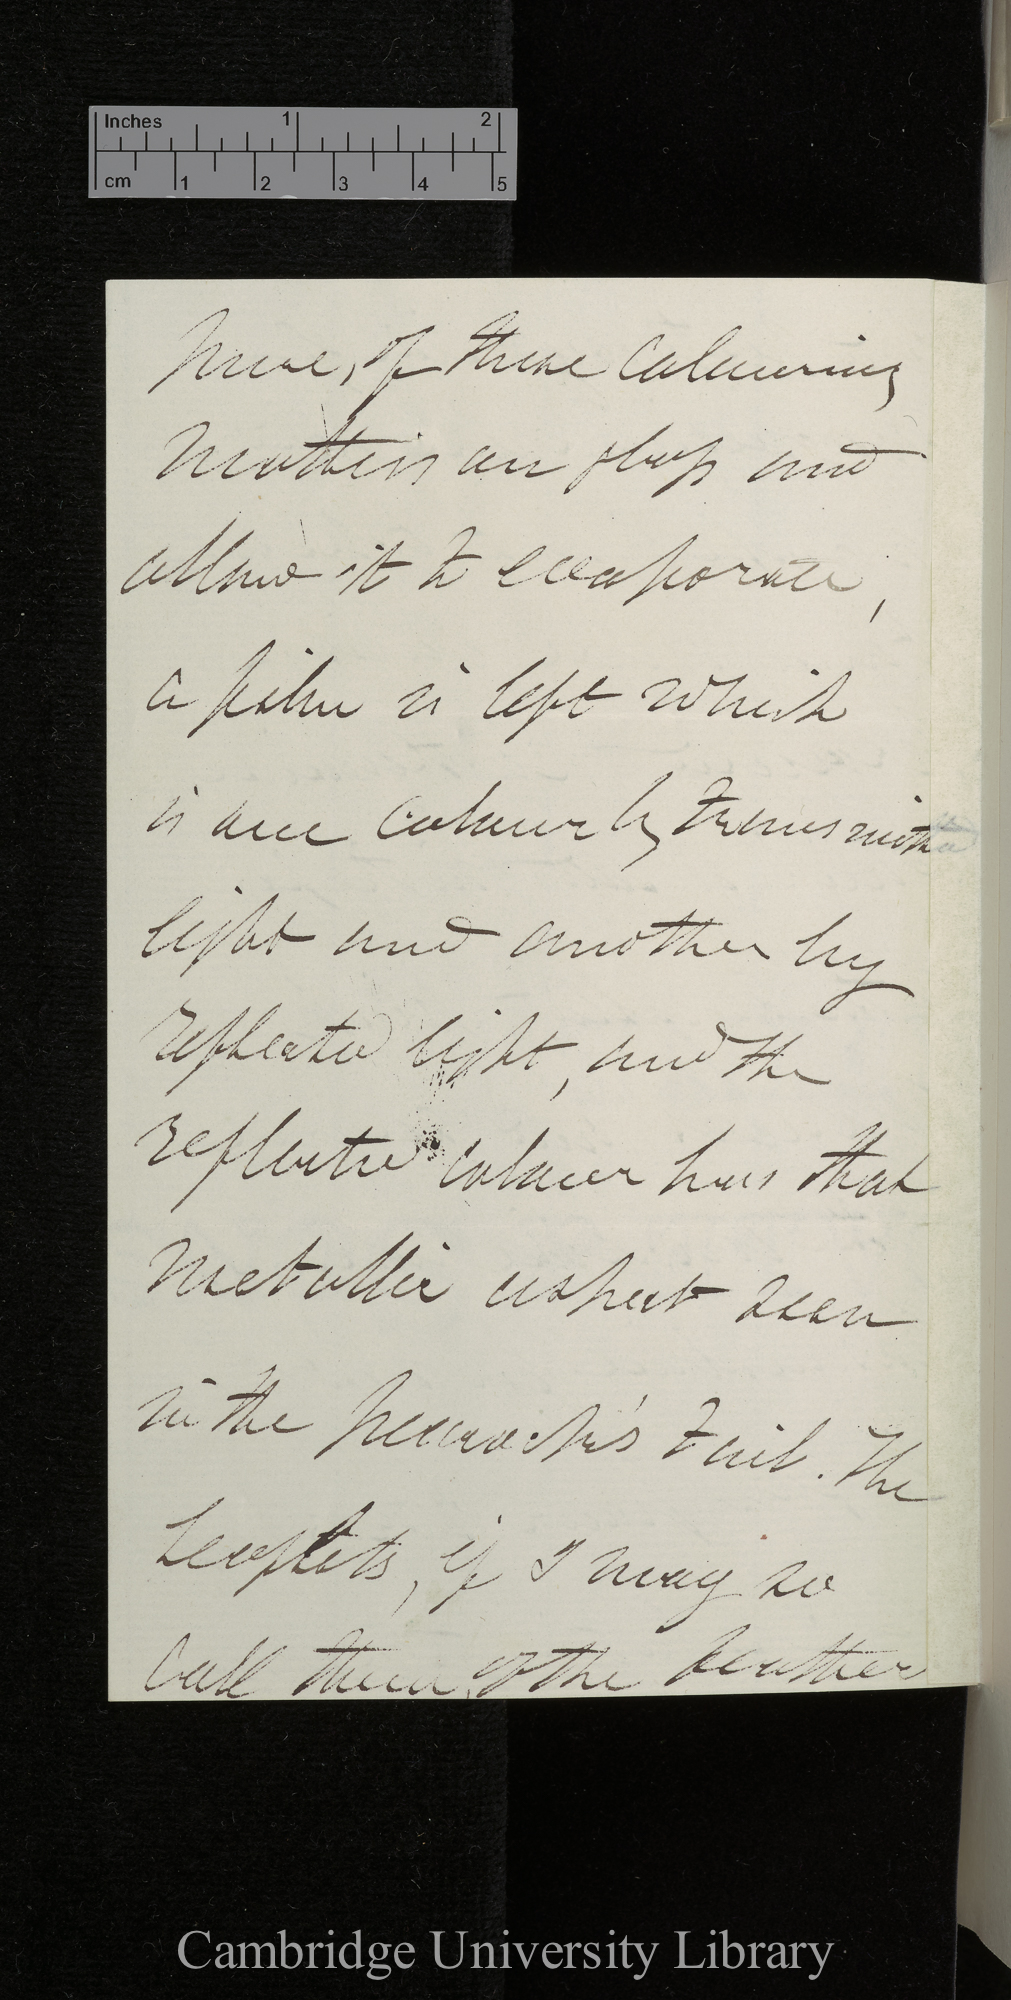 Inches 1 2
cm 1 2 3 4 5
pure, of these colouring
matters on glass and
allow it to evaporate,
a film is left which
is one colour by transmitted
light and another by
reflected light, and the
reflected colour has that
metallic aspect seen
in the peacock's tail. The
leaflets, if I may so
call them, of the feather
Cambridge University Library